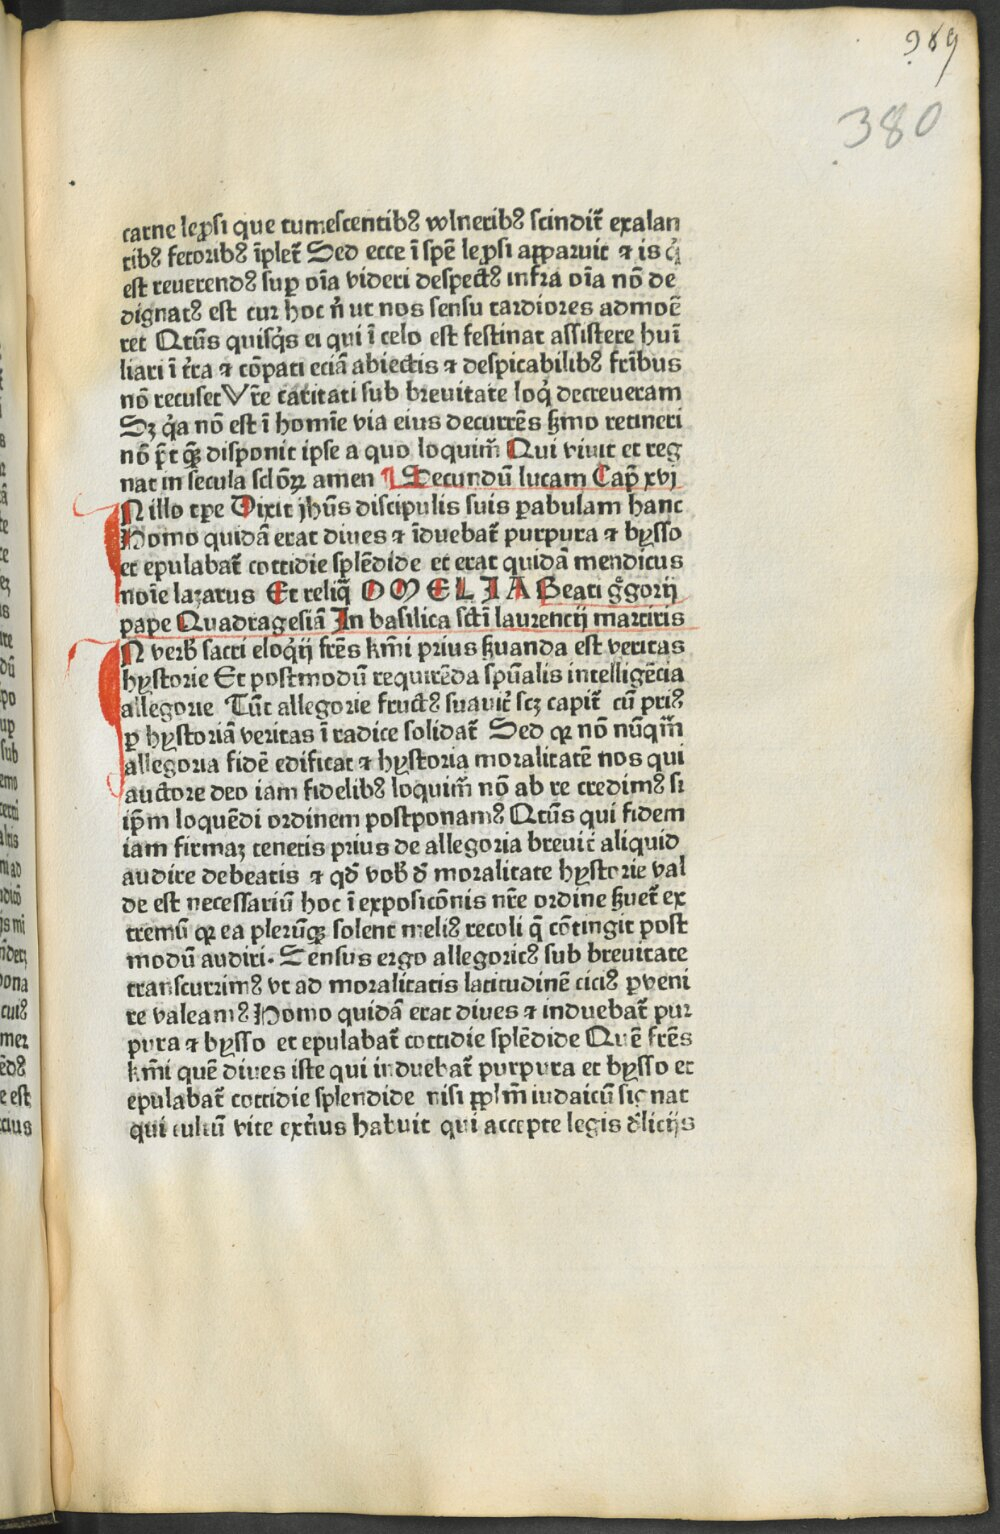 369
380
carne leprsi que tumescentibꝰ wlneribꝰ scindit̃ exalan
tibꝰ fetoribꝰ īplet̃ Sed ecce ī spē leprsi apparuit ⁊ is q̇
est reuerendꝰ suꝑ oīa videri despectꝰ infra oīa nō de
dignatꝰ est cur hoc ñ ut nos sensu tardiores admoē
ret Qtūs quisq̇s ei qui ī celo est festinat assistere huī
liari ī ťra ⁊ cōpati eciā abiectis ⁊ despicabilibꝰ fr̄ibus
nō recuset Vr̄e caritati sub breuitate loq̇ decreueram
Sꝫ q̇a nō est ī homīe via eius decurrēs ẜmo retineri
nō p̄t qꝫ disponit ipse a quo loquim̃ Qui viuit et reg
nat in secula sclōꝝ amen ¶ Secundū lucam Cap̄ xvj
IN illo tꝑe Dixit jhūs discipulis suis parabulam hanc
Homo quidā erat diues ⁊ īduebat̃ purpura ⁊ bysso
et epulabat̃ cottidie splēdide et erat quidā mendicus
noīe lazarus Et reliq̄ OMELIA Beati g̊gorij
pape Quadragesiā In basilica sctī laurencij martiris
IN verbꝭ sacri eloq̇ij frēs kmī prius ẜuanda est veritas
hystorie Et postmodū requirēda spūalis intelligēcia
allegorie Tūc allegorie fructꝰ suauiť scꝫ capit̃ cū priꝰ
ꝑ hystoriā veritas ī radice solidat̃ Sed qꝛ nō nūqm̃
allegoria fidē edificat ⁊ hystoria moralitatē nos qui
auctore deo iam fidelibꝰ loquim̃ nō ab re credimꝰ si
ip̄m loquēdi ordinem postponamꝰ Qtūs qui fidem
iam firmaꝫ tenetis prius de allegoria breuiť aliquid
audire debeatis ⁊ qđ vobꝭ đ moralitate hystorie val
de est necessariū hoc ī exposicōnis nr̄e ordine ẜuet̃ ex
tremū qꝛ ea plerūqꝫ solent meliꝰ recoli q̄ cōtingit post
modū audiri. Sensus ergo allegoricꝰ sub breuitate
transcurrimꝰ vt ad moralitatis latitudinē ciciꝰ ꝑueni
re valeamꝰ Homo quidā erat dives ⁊ induebat̃ pur
pura ⁊ bysso et epulabat̃ cottidie splēdide Quē frēs
kmī quē dives iste qui induebat̃ purpura et bysso et
epulabat̃ cottidie splendide nisi ꝓplm̃ iudaicū signat
qui cultū vite exťius habuit qui accepte legis đlicijs